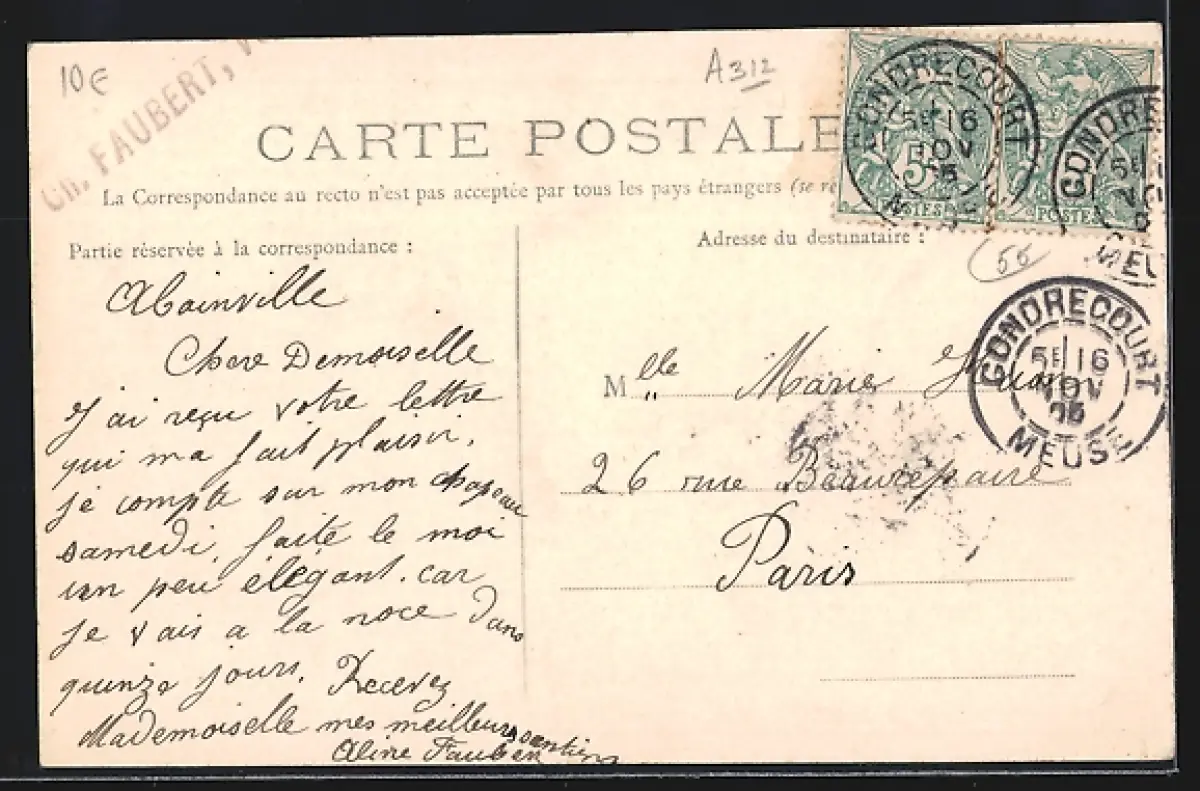 10€
Ch. FAUBERT,
A312
CARTE POSTALE
La Correspondance au recto n'est pas acceptée par tous les pays étrangers (se re
Partie réservée à la correspondance :
Adresse du destinataire :
GONDRECOURT
5E 16
NOV
05
MEUSE
5c
POSTES
POSTES
GONDRE
5E
MEU
(55
GONDRECOURT
5E 16
NOV
05
MEUSE
Abainville
Chere Demoiselle
J'ai reçu votre lettre
qui ma fait plaisir,
je compte sur mon chapeau
samedi, faite le moi
un peu élégant. car
je vais a la noce dans
quinze jours, Recevez
Mademoiselle mes meilleurs sentim
Aline Faubert
Mlle Marie
26 rue Beaurepaire
Paris